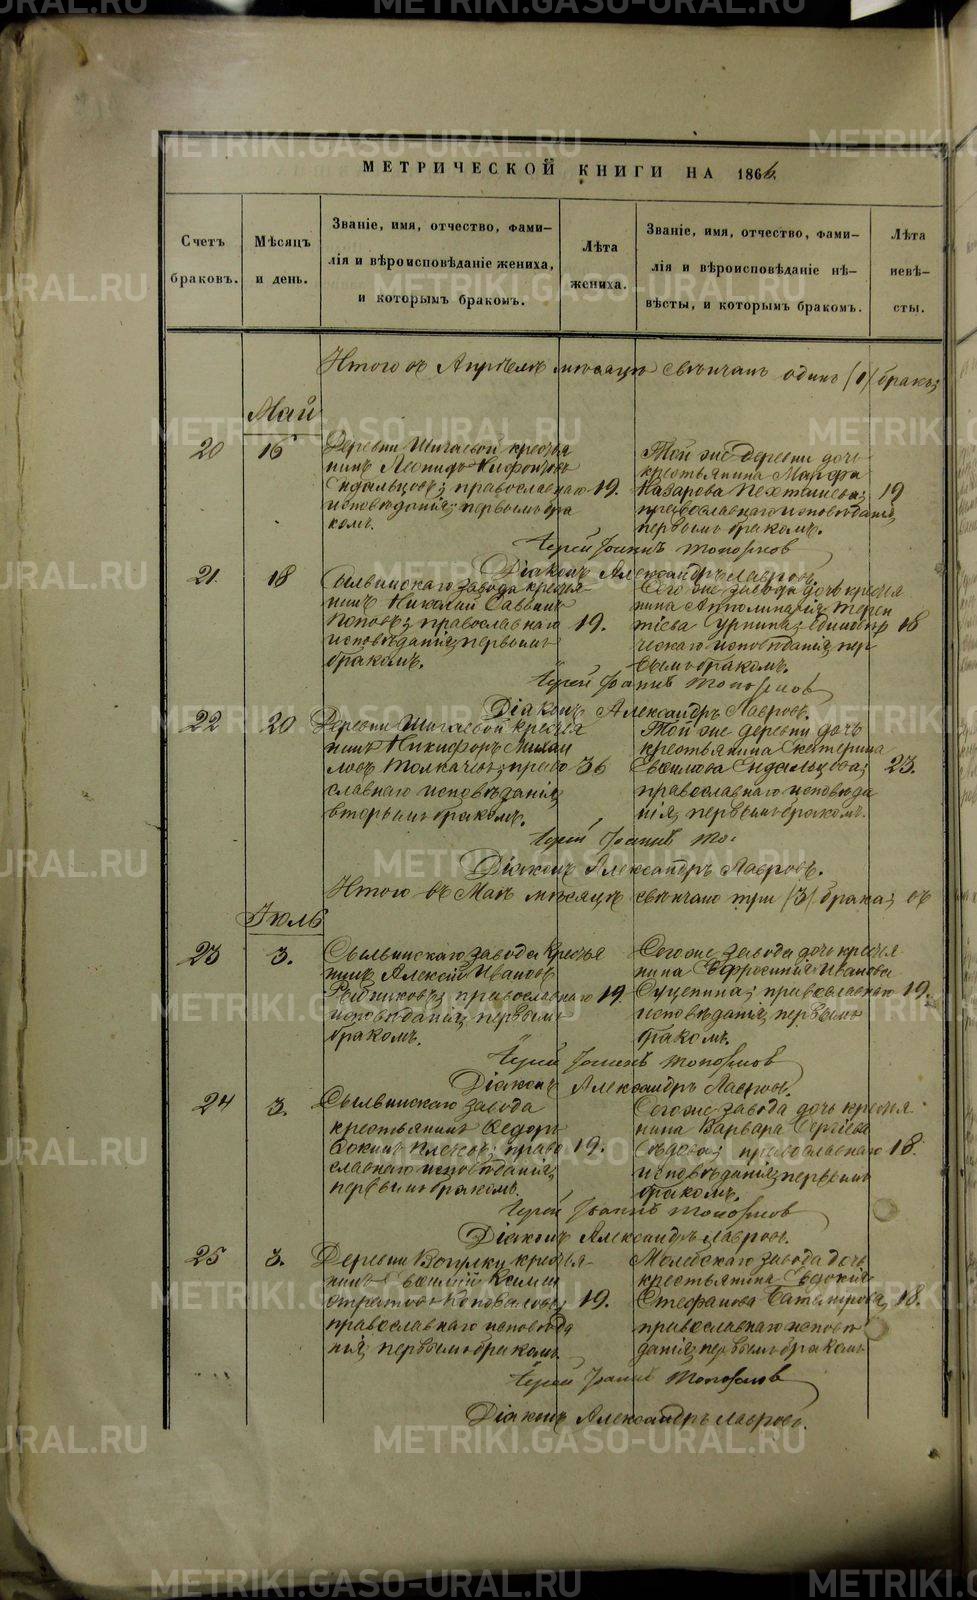 МЕТРИЧЕСКОЙ КНИГИ НА 1866.
Счетъ браковъ.
Мѣсяцъ и день.
Званіе, имя, отчество, фами-
лія и вѣроисповѣданіе жениха,
и которымъ бракомъ.
Лѣта
жениха.
Званіе, имя, отчество, фами-
лія и вѣроисповѣданіе нѣ-
вѣсты, и которымъ бракомъ.
Лѣта
невѣ-
сты.
Итого въ Апрѣлѣ мѣсяцѣ свѣнчанъ одинъ /1/ бракъ;
Май
20
16
Деревни Шигаевой крестья
нинъ Леонидъ
православнаго
исповѣданія; первымъ бра
комъ.
19.
Той же деревни дочь
крестьянина Марфа
Назарова
православнаго исповѣданія,
первымъ бракомъ.
19
Іерей Іоаннъ Топорковъ
Діаконъ Александръ Лавровъ.
21.
18
Сылвинскаго завода крестья-
нинъ Николай Саввинъ
Поповъ; православнаго
исповѣданія; первымъ
бракомъ.
19.
Того же завода дочь крестья
нина Апполинарія Терен
тіева
ческаго исповѣданія пер
вымъ бракомъ.
18
Іерей Іоаннъ Топорковъ
Діаконъ Александръ Лавровъ.
22
20
Деревни Шигаевой крестья
нинъ Никифоръ Михаи
ловъ Толкачевъ; право
славнаго исповѣданія;
вторымъ бракомъ.
36
Той же деревни дочь
крестьянина Екатерина
православнаго исповѣда
нія, первымъ бракомъ.
23.
Іерей Іоаннъ То:
Діаконъ Александръ Лавровъ.
Итого въ Маѣ мѣсяцѣ свѣнчано три /3/ брака; въ
Іюль
23
3.
Сылвинскаго завода крестья
нинъ Алексѣй Ивановъ
православнаго
исповѣданія; первымъ
бракомъ.
19.
Того же завода дочь крестья
нина Ефросинія Иванова
православнаго
исповѣданія; первымъ
бракомъ.
19.
Іерей Іоаннъ Топорковъ
Діаконъ Александръ Лавровъ.
24
3.
Сылвинскаго завода
крестьянинъ Ѳедоръ
право
славнаго исповѣданія;
первымъ бракомъ.
19.
Того же завода дочь крестья
нина Варвара Сергіева
православнаго
исповѣданія; первымъ
бракомъ.
18.
Іерей Іоаннъ Топорковъ
Діаконъ Александръ Лавровъ.
25
3.
Деревни крестья-
нинъ
Коновалов
православнаго исповѣда
нія; первымъ бракомъ
19.
Молебскаго завода дочь
крестьянина Евдокія
Стефанова
православнаго исповѣ
данія; первымъ бракомъ
18.
Іерей Іоаннъ Топорковъ
Діаконъ Александръ Лавровъ.
METRIKI.GASO-URAL.RU